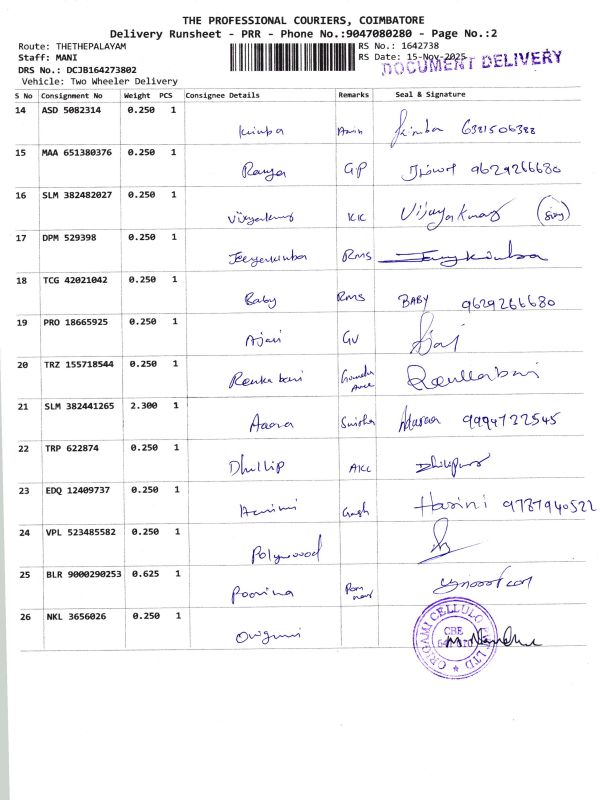 THE PROFESSIONAL COURIERS, COIMBATORE
Delivery Runsheet - PRR - Phone No.:9047080280 - Page No.:2
Route: THETHEPALAYAM
RS No.: 1642738
Staff: MANI
RS Date: 15-Nov-2025
DOCUMENT DELIVERY
DRS No.: DCJB164273802
Vehicle: Two Wheeler Delivery
S No Consignment No Weight PCS Consignee Details Remarks Seal & Signature
14 ASD 5082314 0.250 1
15 MAA 651380376 0.250 1
Ranga GP 9629266680
16 SLM 382482027 0.250 1
KK Vijayakumar
17 DPM 529398 0.250 1
RMS
18 TCG 42021042 0.250 1
Baby RMS BABY 9629266680
19 PRO 18665925 0.250 1
Ajai GV Ajai
20 TRZ 155718544 0.250 1
21 SLM 382441265 2.300 1
Aarra 9994722545
22 TRP 622874 0.250 1
Dhillip
23 EDQ 12409737 0.250 1
Harini Harini 9787940522
24 VPL 523485582 0.250 1
Polywood
25 BLR 9000290253 0.625 1
26 NKL 3656026 0.250 1
ORIGAMI CELLULO PVT LTD
CBE